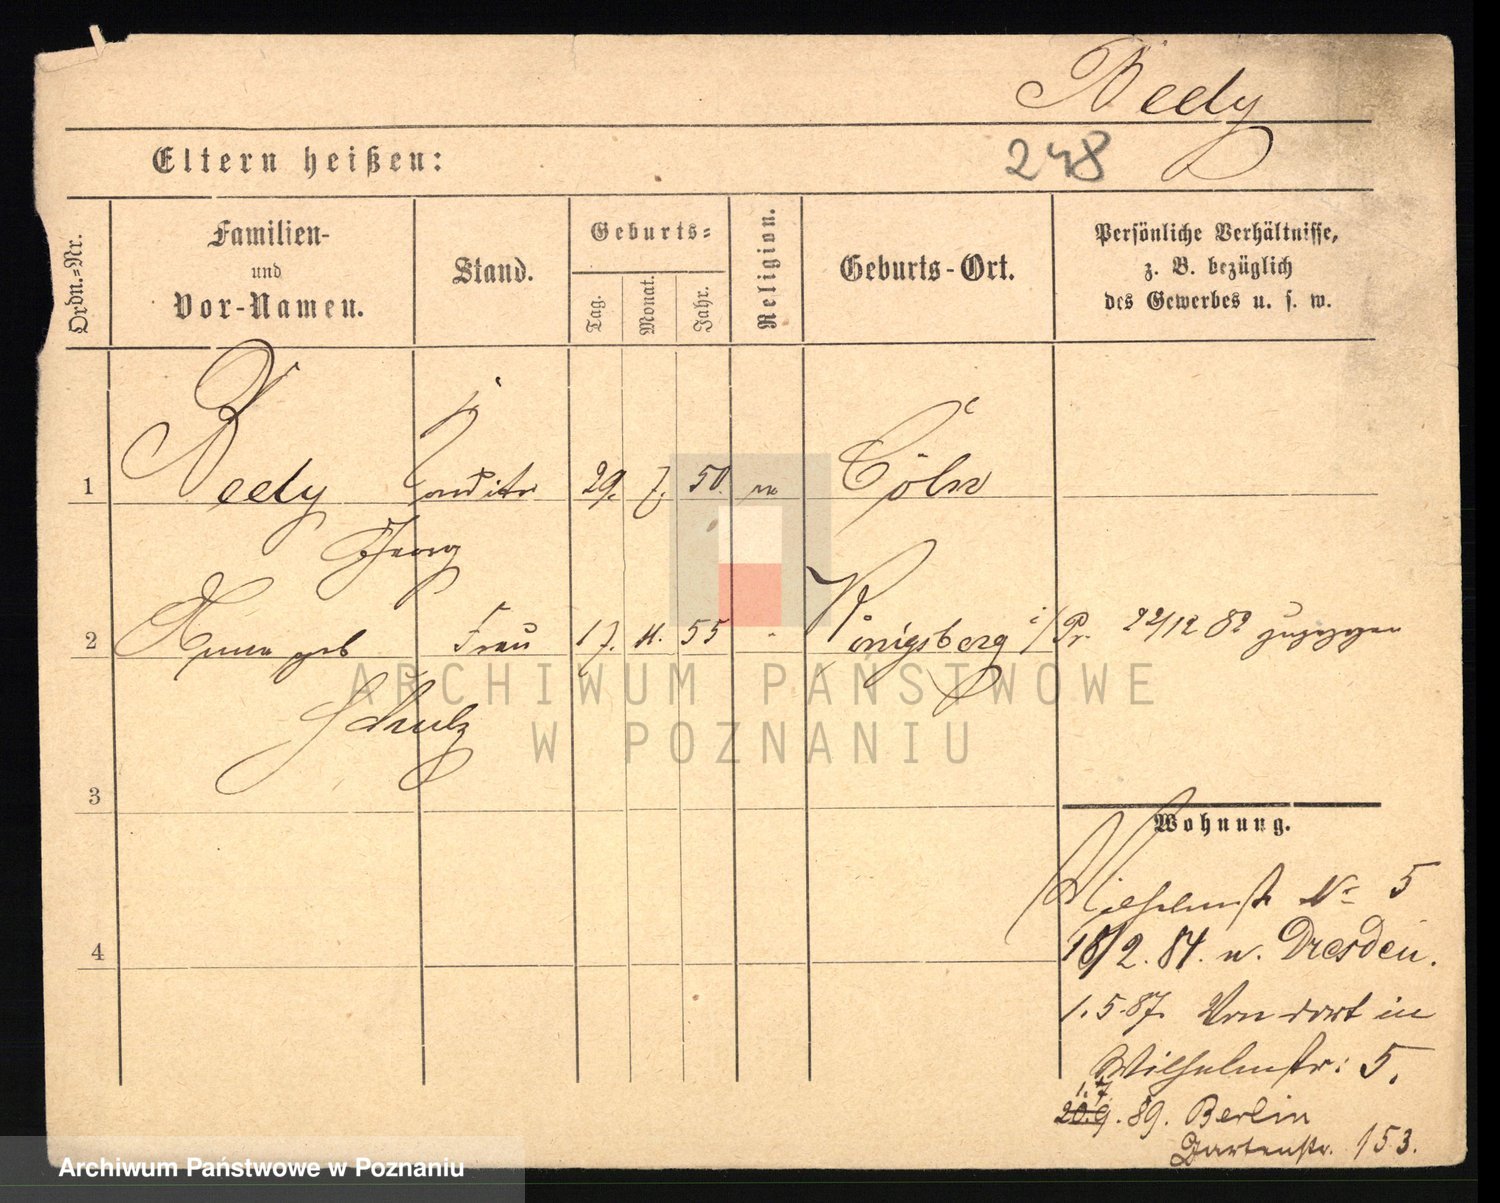 Beely
248
Eltern heißen:
Ordn.=Nr.
Familien-
und
Vor-Namen.
Stand.
Geburts=
Tag.
Monat.
Jahr.
Religion.
Geburts-Ort.
Persönliche Verhältnisse,
z. B. bezüglich
des Gewerbes u. s. w.
1 Beely Conditor 29. 7. 50. Cöln
Georg
2 Anna geb Frau 17. 11. 55 Königsberg i/Pr. 22/12 82 zugezogen
Schulz
3
4
Wohnung.
Wilhelmstr No 5
18/2. 84. n. Dresden.
1.5.87. Von dort in
Wilhelmstr: 5.
1.7.
20.9. 89. Berlin
Gartenstr. 153.
ARCHIWUM PAŃSTWOWE
W POZNANIU
Archiwum Państwowe w Poznaniu